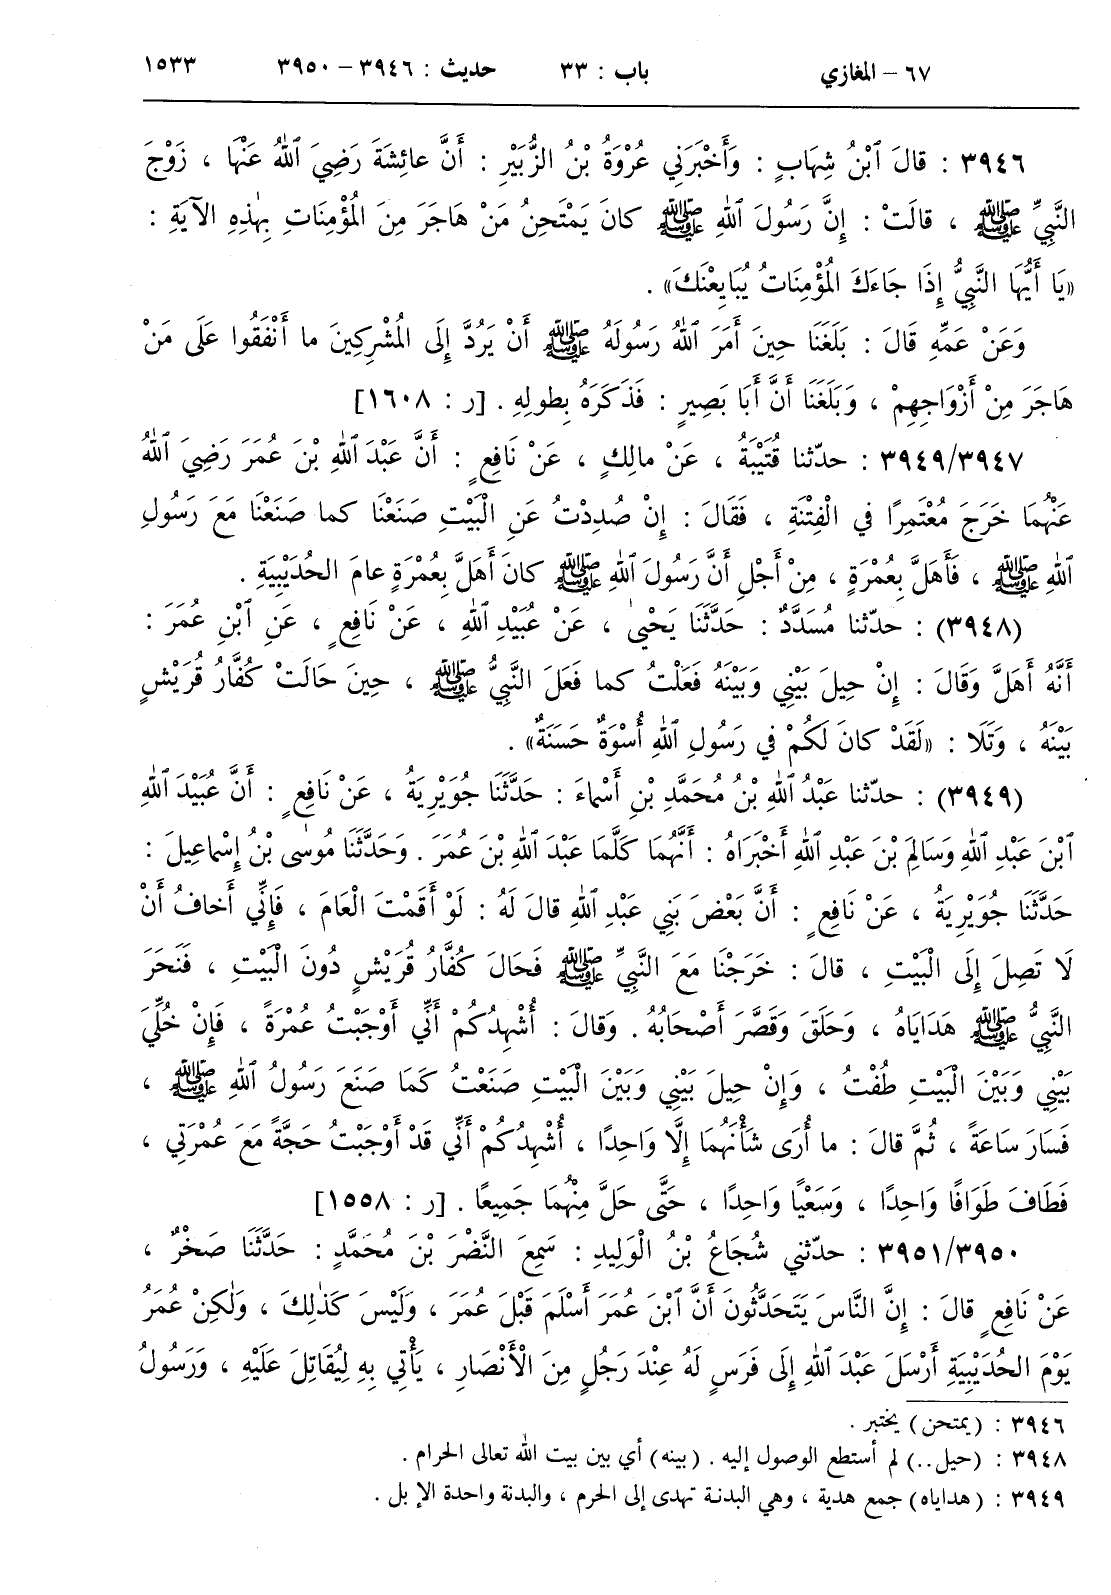 ٦٧ – المغازي باب : ٣٣ حديث : ٣٩٤٦ – ٣٩٥٠ ١٥٣٣
٣٩٤٦ : قالَ ٱبْنُ شِهَابٍ : وَأَخْبَرَنِي عُرْوَةُ بْنُ الزُّبَيْرِ : أَنَّ عائِشَةَ رَضِيَ ٱللهُ عَنْهَا ، زَوْجَ
النَّبِيِّ ﷺ ، قالَتْ : إِنَّ رَسُولَ ٱللهِ ﷺ كانَ يَمْتَحِنُ مَنْ هَاجَرَ مِنَ المُؤْمِنَاتِ بِهٰذِهِ الآيَةِ :
«يَا أَيُّهَا النَّبِيُّ إِذَا جَاءَكَ المُؤْمِنَاتُ يُبَايِعْنَكَ» .
وَعَنْ عَمِّهِ قَالَ : بَلَغَنَا حِينَ أَمَرَ ٱللهُ رَسُولَهُ ﷺ أَنْ يَرُدَّ إِلَى المُشْرِكِينَ ما أَنْفَقُوا عَلَى مَنْ
هَاجَرَ مِنْ أَزْوَاجِهِمْ ، وَبَلَغَنَا أَنَّ أَبَا بَصِيرٍ : فَذَكَرَهُ بِطولِهِ . [ر : ١٦٠٨]
٣٩٤٩/٣٩٤٧ : حدّثنا قُتَيْبَةُ ، عَنْ مالِكٍ ، عَنْ نَافِعٍ : أَنَّ عَبْدَ ٱللهِ بْنَ عُمَرَ رَضِيَ ٱللهُ
عَنْهُمَا خَرَجَ مُعْتَمِرًا في الْفِتْنَةِ ، فَقَالَ : إِنْ صُدِدْتُ عَنِ الْبَيْتِ صَنَعْنَا كما صَنَعْنَا مَعَ رَسُولِ
ٱللهِ ﷺ ، فَأَهَلَّ بِعُمْرَةٍ ، مِنْ أَجْلِ أَنَّ رَسُولَ ٱللهِ ﷺ كانَ أَهَلَّ بِعُمْرَةٍ عامَ الحُدَيْبِيَةِ .
(٣٩٤٨) : حدّثنا مُسَدَّدٌ : حَدَّثَنَا يَحْيٰى ، عَنْ عُبَيْدِ ٱللهِ ، عَنْ نَافِعٍ ، عَنِ ٱبْنِ عُمَرَ :
أَنَّهُ أَهَلَّ وَقَالَ : إِنْ حِيلَ بَيْنِي وَبَيْنَهُ فَعَلْتُ كما فَعَلَ النَّبِيُّ ﷺ ، حِينَ حَالَتْ كُفَّارُ قُرَيْشٍ
بَيْنَهُ ، وَتَلَا : «لَقَدْ كانَ لَكُمْ في رَسُولِ ٱللهِ أُسْوَةٌ حَسَنَةٌ» .
(٣٩٤٩) : حدّثنا عَبْدُ ٱللهِ بْنُ مُحَمَّدِ بْنِ أَسْماءَ : حَدَّثَنَا جُوَيْرِيَةُ ، عَنْ نَافِعٍ : أَنَّ عُبَيْدَ ٱللهِ
ٱبْنَ عَبْدِ ٱللهِ وَسَالِمَ بْنَ عَبْدِ ٱللهِ أَخْبَرَاهُ : أَنَّهُمَا كَلَّمَا عَبْدَ ٱللهِ بْنَ عُمَرَ . وَحَدَّثَنَا مُوسٰى بْنُ إِسْماعِيلَ :
حَدَّثَنَا جُوَيْرِيَةُ ، عَنْ نَافِعٍ : أَنَّ بَعْضَ بَنِي عَبْدِ ٱللهِ قالَ لَهُ : لَوْ أَقَمْتَ الْعَامَ ، فَإِنِّي أَخافُ أَنْ
لَا تَصِلَ إِلَى الْبَيْتِ ، قالَ : خَرَجْنَا مَعَ النَّبِيِّ ﷺ فَحَالَ كُفَّارُ قُرَيْشٍ دُونَ الْبَيْتِ ، فَنَحَرَ
النَّبِيُّ ﷺ هَدَايَاهُ ، وَحَلَقَ وَقَصَّرَ أَصْحَابُهُ . وَقالَ : أُشْهِدُكُمْ أَنِّي أَوْجَبْتُ عُمْرَةً ، فَإِنْ خُلِّيَ
بَيْنِي وَبَيْنَ الْبَيْتِ طُفْتُ ، وَإِنْ حِيلَ بَيْنِي وَبَيْنَ الْبَيْتِ صَنَعْتُ كَمَا صَنَعَ رَسُولُ ٱللهِ ﷺ ،
فَسَارَ سَاعَةً ، ثُمَّ قالَ : ما أُرَى شَأْنَهُمَا إِلَّا وَاحِدًا ، أُشْهِدُكُمْ أَنِّي قَدْ أَوْجَبْتُ حَجَّةً مَعَ عُمْرَتِي ،
فَطَافَ طَوَافًا وَاحِدًا ، وَسَعْيًا وَاحِدًا ، حَتَّى حَلَّ مِنْهُمَا جَمِيعًا . [ر : ١٥٥٨]
٣٩٥١/٣٩٥٠ : حدّثني شُجَاعُ بْنُ الْوَلِيدِ : سَمِعَ النَّضْرَ بْنَ مُحَمَّدٍ : حَدَّثَنَا صَخْرٌ ،
عَنْ نَافِعٍ قالَ : إِنَّ النَّاسَ يَتَحَدَّثُونَ أَنَّ ٱبْنَ عُمَرَ أَسْلَمَ قَبْلَ عُمَرَ ، وَلَيْسَ كَذٰلِكَ ، وَلٰكِنْ عُمَرُ
يَوْمَ الحُدَيْبِيَةِ أَرْسَلَ عَبْدَ ٱللهِ إِلَى فَرَسٍ لَهُ عِنْدَ رَجُلٍ مِنَ الْأَنْصَارِ ، يَأْتِي بِهِ لِيُقَاتِلَ عَلَيْهِ ، وَرَسُولُ
٣٩٤٦ : (يمتحن) يختبر .
٣٩٤٨ : (حيل..) لم أستطع الوصول إليه . (بينه) أي بين بيت الله تعالى الحرام .
٣٩٤٩ : (هداياه) جمع هدية ، وهي البدنة تهدى إلى الحرم ، والبدنة واحدة الإبل .